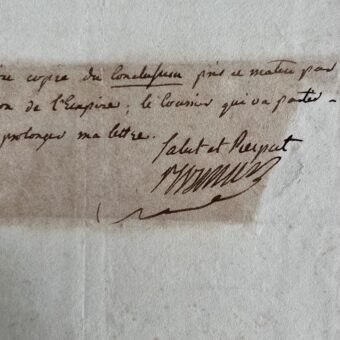 copie du Conclusum pris ce matin par
on de l'Empire; le Courier qui va partir
prolonger ma lettre.
Salut et Respect